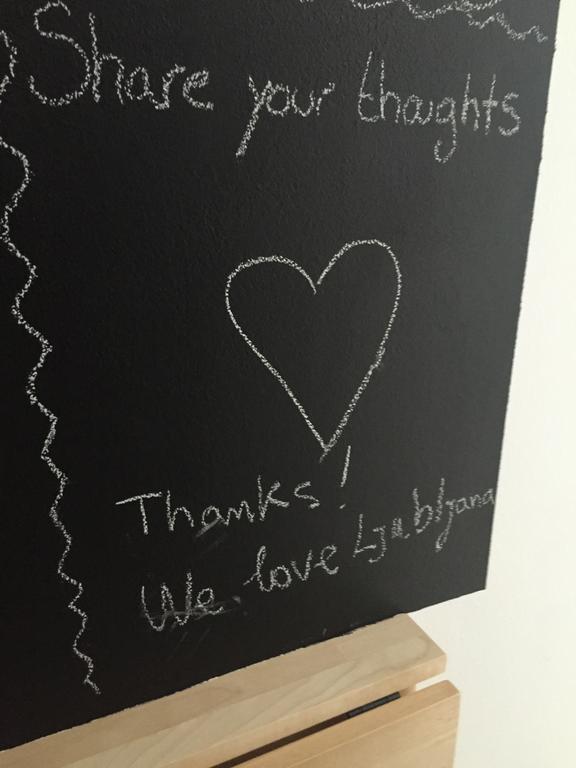 Share your thoughts
Thanks!
We love Ljubljana